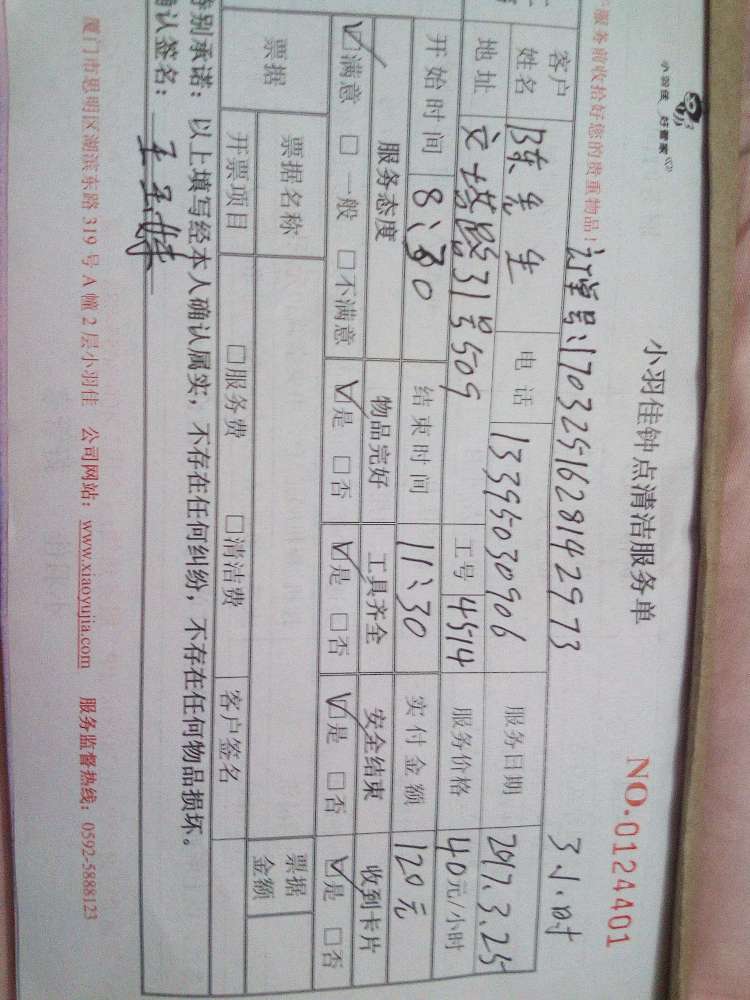 小羽佳 好管家
小羽佳钟点清洁服务单
NO.0124401
服务前收拾好您的贵重物品！
订单号:1703251628142973 3小时
客户姓名 陈先生 电话 13395030906 服务日期 2017.3.25
地址 文塔路31号509 工号 4514 服务价格 40元/小时
开始时间 8:30 结束时间 11:30 实付金额 120元
服务态度 物品完好 工具齐全 安全结束 收到卡片
☑满意 □一般 □不满意 ☑是 □否 ☑是 □否 ☑是 □否 ☑是 □否
票据 票据名称 票据金额
开票项目 □服务费 □清洁费 客户签名
特别承诺：以上填写经本人确认属实，不存在任何纠纷，不存在任何物品损坏。
确认签名：王
厦门市思明区湖滨东路 319 号 A 幢 2 层小羽佳 公司网站：www.xiaoyujia.com 服务监督热线：0592-5888123